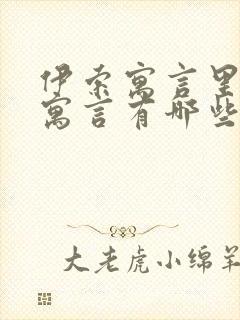 伊索寓言里
寓言有哪些
大老虎小绵羊